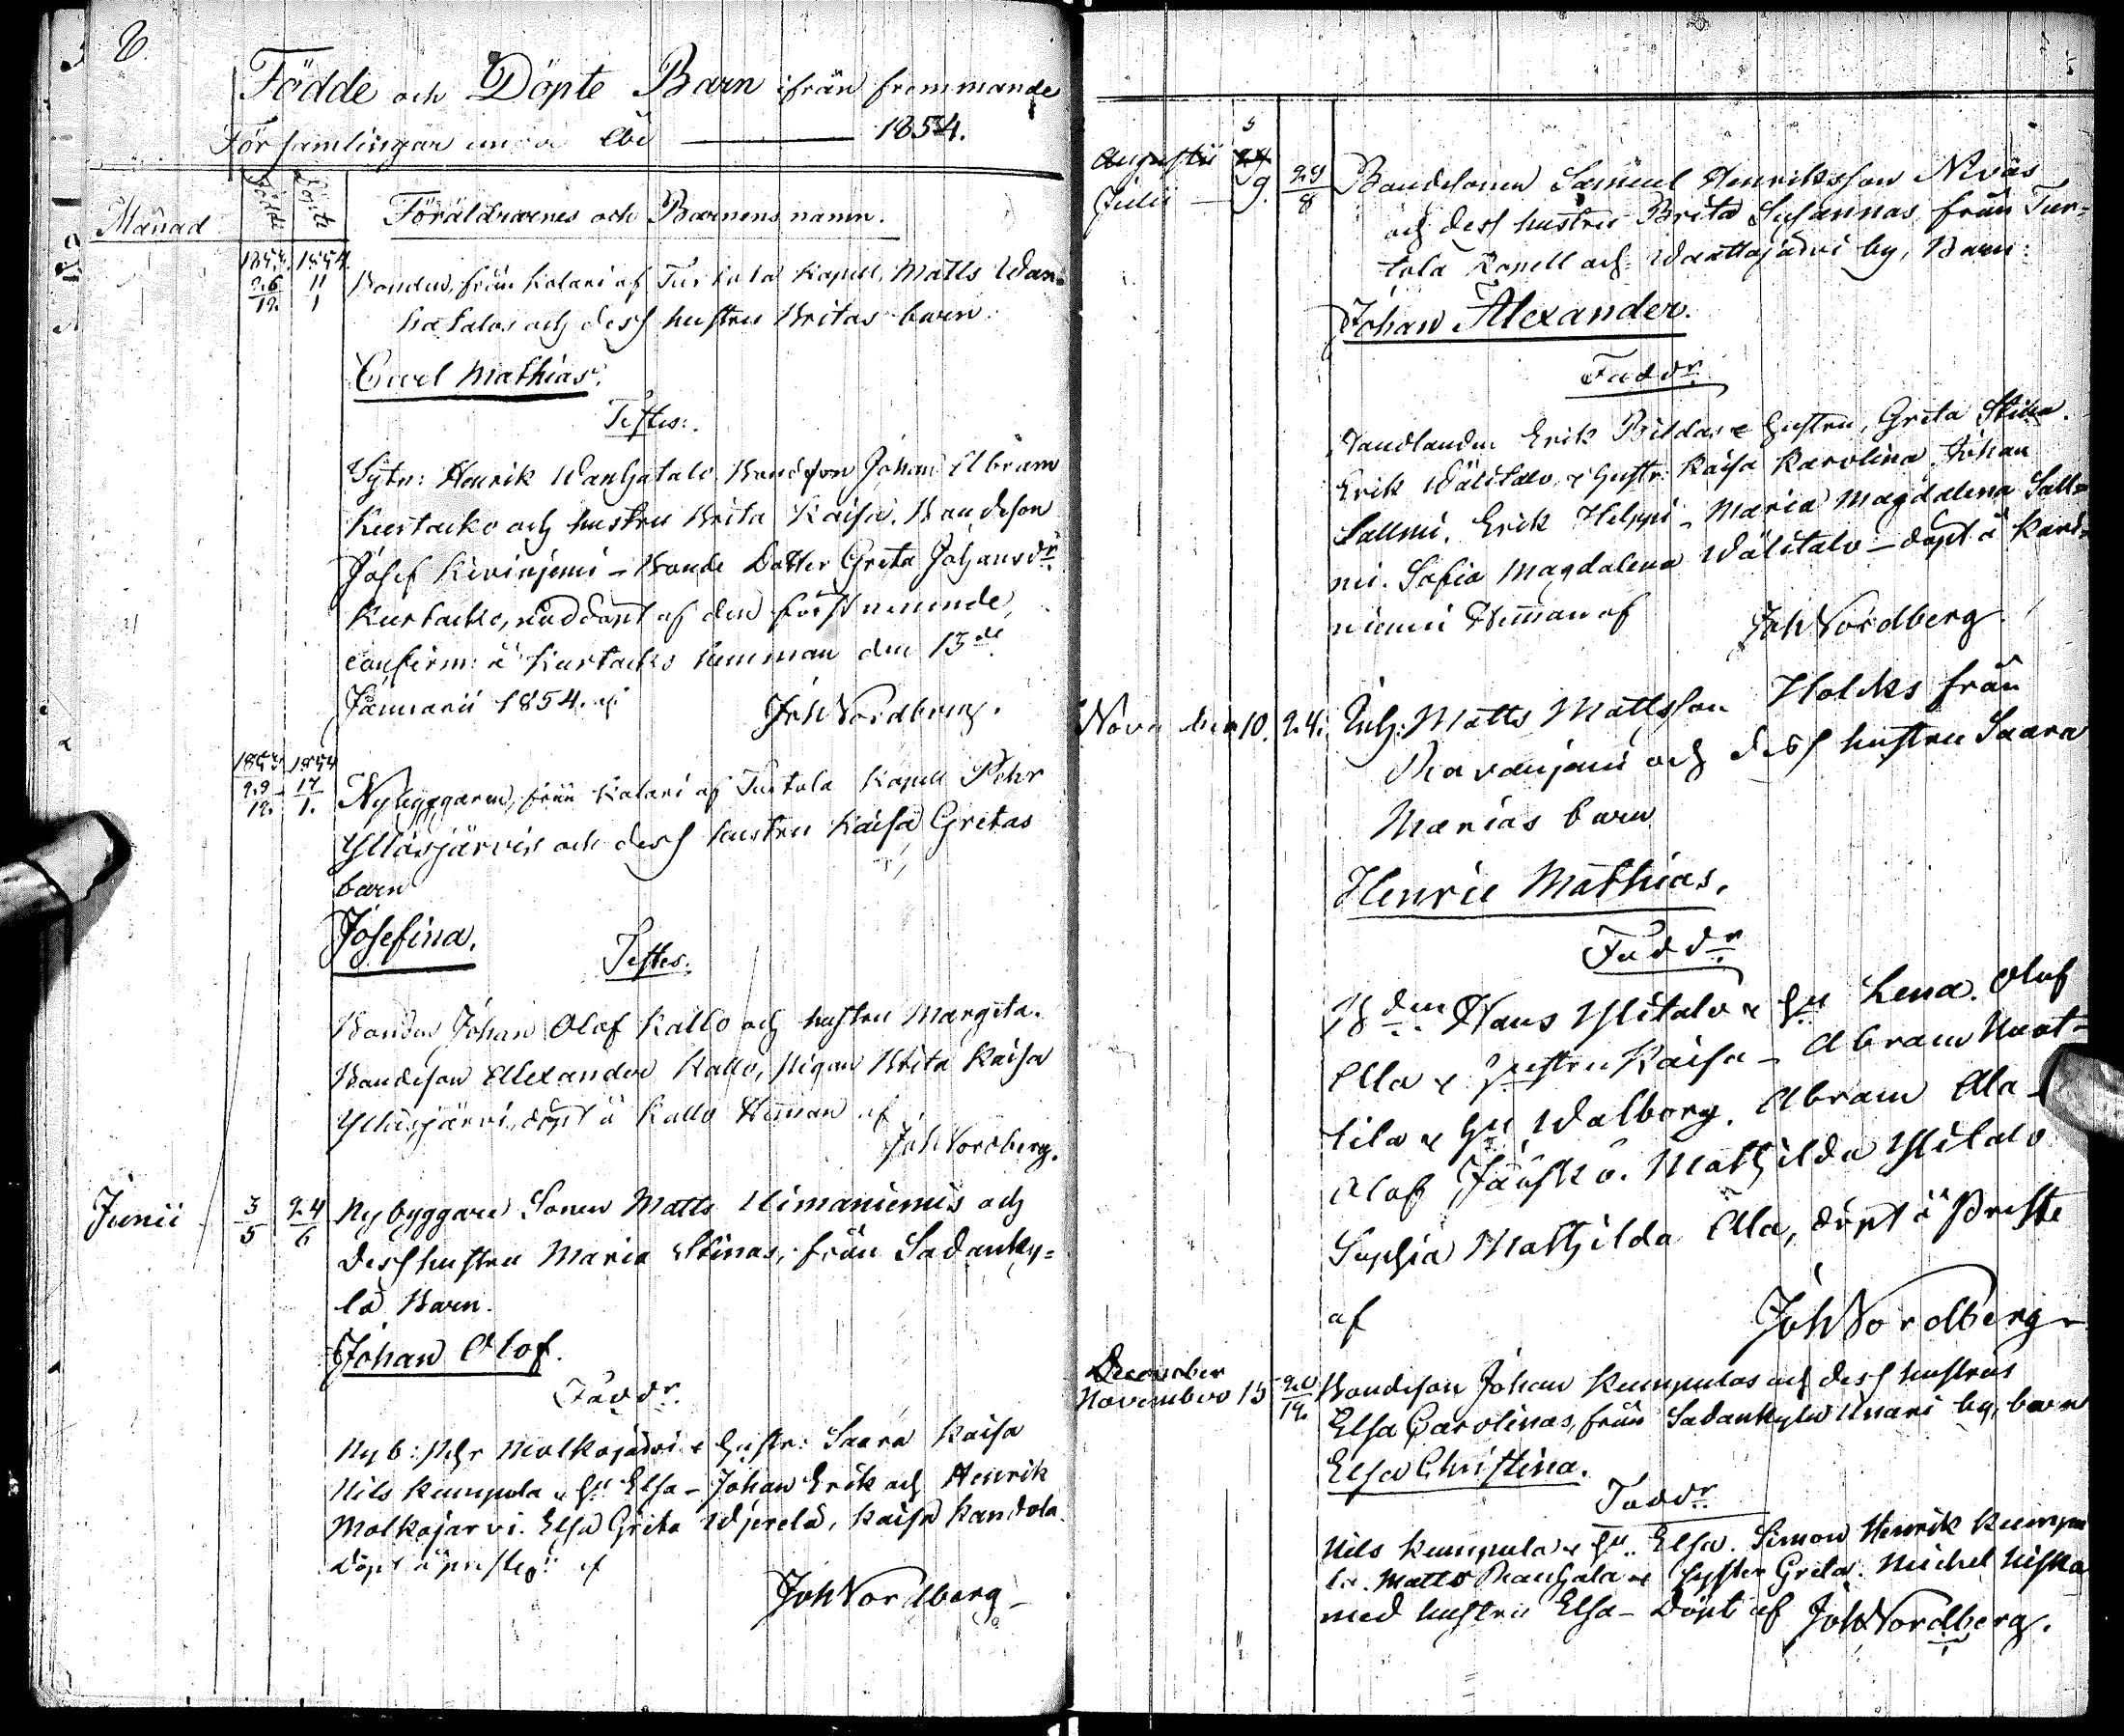 8.
Födde och Döpte Barn ifrån fremmande
Församlingar under året 1854.
Månad Födde Döpte Föräldrarnes och Barnens namn.
1853. 1854.
26/12. 11/1 Bonden, från Kolari af Turtola Kapell, Matts Wan=
hatalos och dess hustru Britas barn.
Carl Mathias.
Testes:
Sytn: Henrik Wanhatalo, Bondeson Johan Abram
Kurtacko och hustru Brita Kaisa. Bondeson
Josef Kivinjemi – Bonde Dotter Greta Johansdr
Kurtacko, nöddöpt af den först nemnde,
confirm: å Kurtacko hemman den 13de
Januarii 1854. af Joh Nordberg.
1853 1854
29/12. 17/1. Nybyggaren, från Kolari af Turtola Kapell Pehr
Ylläsjärvis och dess hustru Kaisa Gretas
barn
Josefina.
Testes.
Bonden Johan Olof Kallo och hustru Margeta.
Bondeson Alexander Kallo, Pigan Brita Kaisa
Ylläsjärvi, döpt å Kallo Heman af
Joh Nordberg.
Junii 3/5 24/6 Nybyggare Sonen Matts Nimaniemis och
dess hustru Maria Stinas, från Sodanky=
lä Barn.
Johan Olof.
Faddr.
Nyb: Pehr Molkojärvi & hustr: Saara Kaisa
Nils Kumpula & hu Elsa – Johan Erik och Henrik
Molkojarvi. Elsa Greta Wjerelä, Kaisa Kandola.
Döpt å prestg: af
Joh Nordberg
Augustii 24 5
Julii 9. 29/8 Bondesonen Samuel Henriksson Nivas
och dess hustru Brita Susannas från Tur=
tola Kapell och Waattojärvi by, Barn:
Johan Alexander.
Faddr
Handlanden Erik Pildas & hustru, Greta Stina.
Erik Wälitalo, & hustr: Kaisa Karolina. Johan
Sallmi. Erik Helppi – Maria Magdalena Sall=
mi. Sofia Magdalena Wälitalo – döpt å Kari=
niemi Heman af Joh Nordberg
November 10. 24. Inh: Matts Mattsson Holcks från
Rovanjemi och dess hustru Saara
Marias barn
Henric Mathias.
Faddr
Bden Hans Ylitalo & hu Lena. Olof
Ala & hustru Kaisa – Abram Naat=
tila & hu Walborg. Abram Ala –
Olof Jäuskö. Mathilda Ylitalo
Sophia Mathilda Ala, döpt å Preste
af Joh Nordberg
December
November 15 20/12. Bondeson Johan Kumpulas och dess hustrus
Elsa Carolinas, från Sodankylä Unari by, barn
Elsa Christina.
Faddr
Nils Kumpula & hu.. Elsa. Simon Henrik Kumpu
la. Matts & Syster Greta. Michel Niska
med hustru Elsa – Döpt af Joh Nordberg.